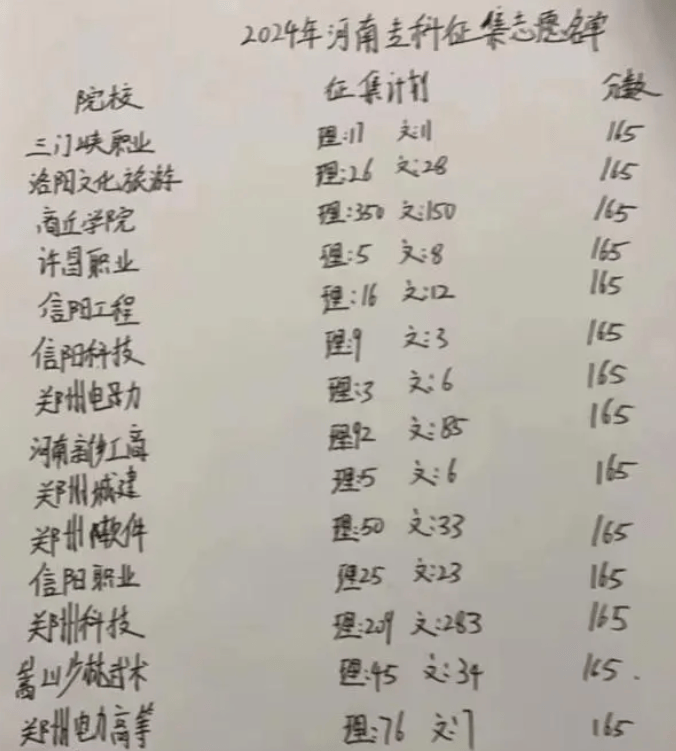 2024年河南专科征集志愿名单
院校 征集计划 分数
三门峡职业 理:17 文:11 165
洛阳文化旅游 理:26 文:28 165
商丘学院 理:350 文:150 165
许昌职业 理:5 文:8 165
信阳工程 理:16 文:12 165
信阳科技 理:9 文:3 165
郑州电力 理:3 文:6 165
河南新乡工商 理92 文:85 165
郑州城建 理:5 文:6 165
郑州软件 理:50 文:33 165
信阳职业 理25 文:23 165
郑州科技 理:209 文:283 165
嵩山少林武术 理:45 文:34 165.
郑州电力高等 理:76 文:7 165